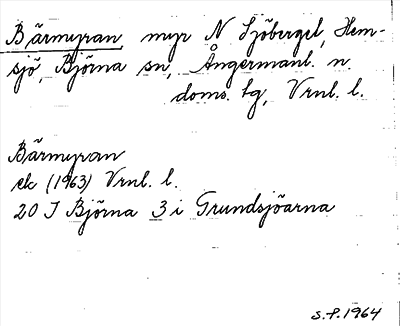 Bärmyran, myr N Sjöberget, Hem-
sjö, Björna sn, Ångermanl. n.
doms. tg, Vrnl. l.
Bärmyran
ek (1963) Vrnl. l.
20 I Björna 3 i Grundsjöarna
S.F. 1964